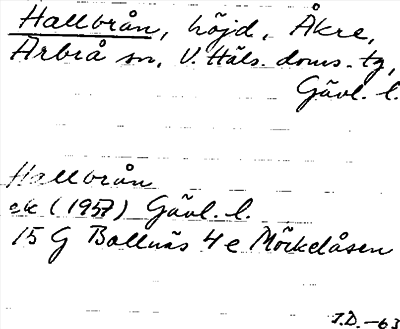 Hallbrån, höjd, Åkre,
Arbrå sn, V. Häls. doms. tg,
Gävl. l.
Hallbrån
ek (1957) Gävl. l.
15 G Bollnäs 4 e Mörkelåsen
I.D. -63